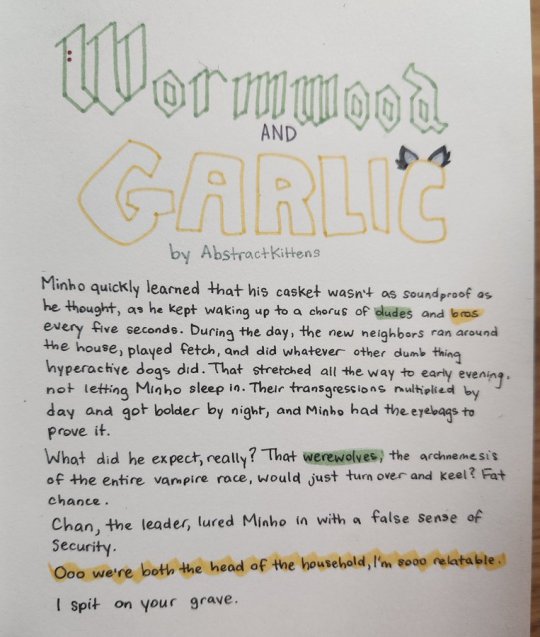 Wormwood
AND
GARLIC
by AbstractKittens
Minho quickly learned that his casket wasn't as soundproof as
he thought, as he kept waking up to a chorus of dudes and bros
every five seconds. During the day, the new neighbors ran around
the house, played fetch, and did whatever other dumb thing
hyperactive dogs did. That stretched all the way to early evening,
not letting Minho sleep in. Their transgressions multiplied by
day and got bolder by night, and Minho had the eyebags to
prove it.
What did he expect, really? That werewolves, the archnemesis
of the entire vampire race, would just turn over and keel? Fat
chance.
Chan, the leader, lured Minho in with a false sense of
security.
Ooo we're both the head of the household, I'm sooo relatable.
I spit on your grave.